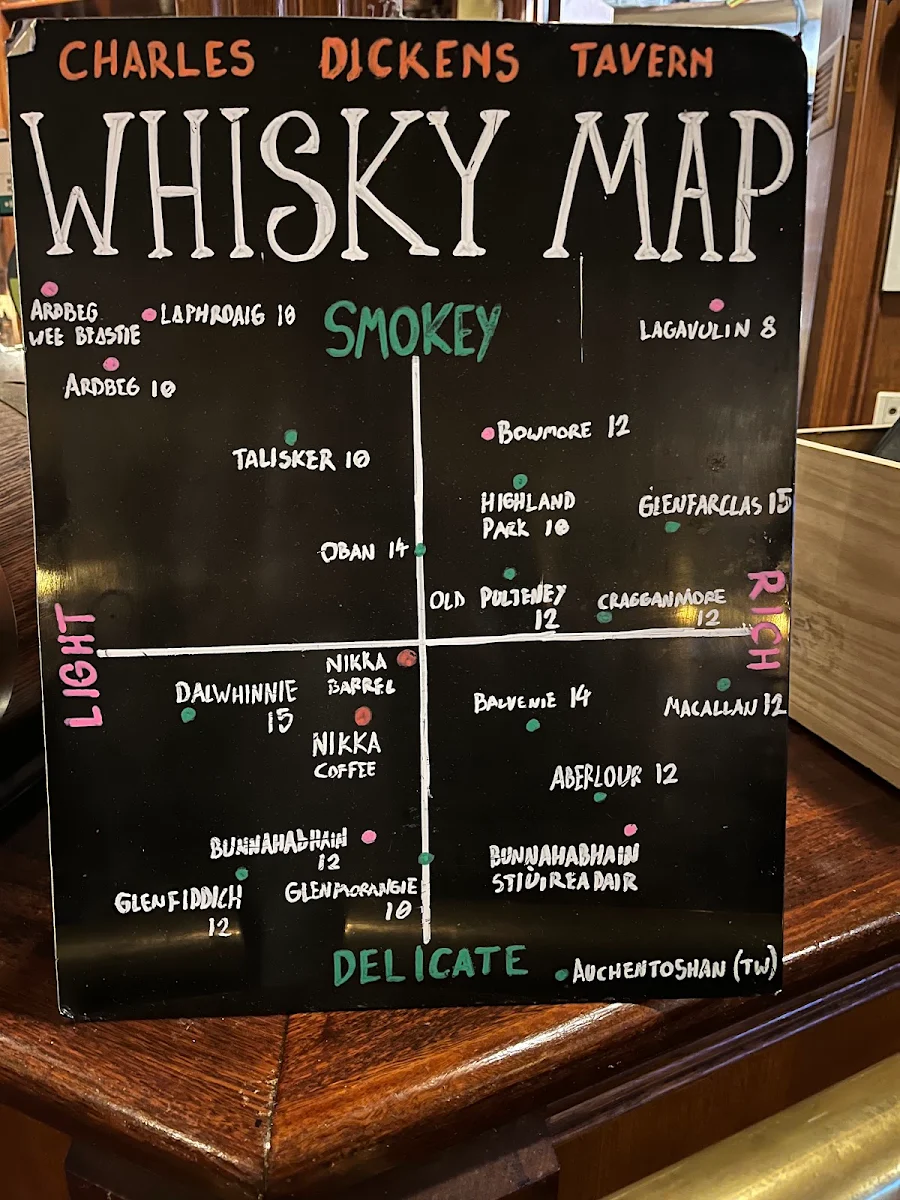 CHARLES DICKENS TAVERN
WHISKY MAP
ARDBEG
WEE BEASTIE
LAPHROAIG 10
SMOKEY
LAGAVULIN 8
ARDBEG 10
BOWMORE 12
TALISKER 10
HIGHLAND
PARK 10
GLENFARCLAS 15
OBAN 14
OLD PULTENEY
12
CRAGGANMORE
12
LIGHT
RICH
NIKKA
BARREL
DALWHINNIE
15
NIKKA
COFFEE
BALVENIE 14
MACALLAN 12
ABERLOUR 12
BUNNAHABHAIN
12
BUNNAHABHAIN
STIÙIREADAIR
GLENFIDDICH
12
GLENMORANGIE
10
DELICATE
AUCHENTOSHAN (TW)